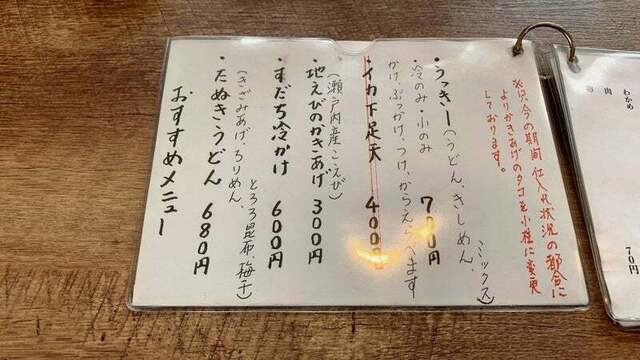 ※只今の期間 仕入れ状況の都合に
よりかきあげのタコを小柱に変更
しております。
・うっきー(うどん、きしめん、
ミックス)
700円
・冷のみ・小のみ
かけ、ぶっかけ、つけ、からえらべます
・イカ下足天 400円
(瀬戸内産こえび)
・地えびのかきあげ 300円
・すだち冷かけ 600円
とろろ昆布、梅干)
(きざみあげ、ちりめん、
・たぬきうどん 680円
おすすめメニュー
わかめ
肉
70円